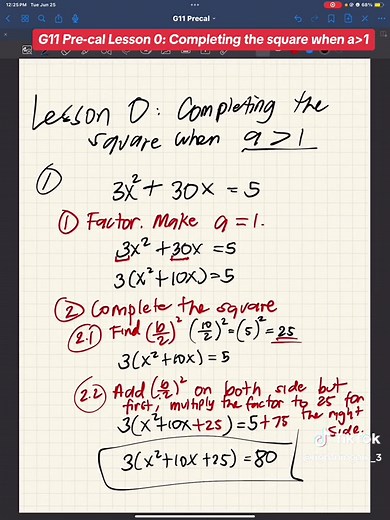 12:25 PM Tue Jun 25
68%
G11 Precal
G11 Pre-cal Lesson 0: Completing the square when a>1
Lesson 0: Completing the
square when a > 1
①
3x² + 30x = 5
① Factor. Make a = 1.
3x² + 30x = 5
3(x² + 10x) = 5
② Complete the square
2.1 Find (b/2)² (10/2)² = (5)² = 25
3(x² + 10x) = 5
2.2 Add (b/2)² on both side but
first, multiply the factor to 25 for
the right
side.
3(x² + 10x + 25) = 5 + 75
3(x² + 10x + 25) = 80
TikTok